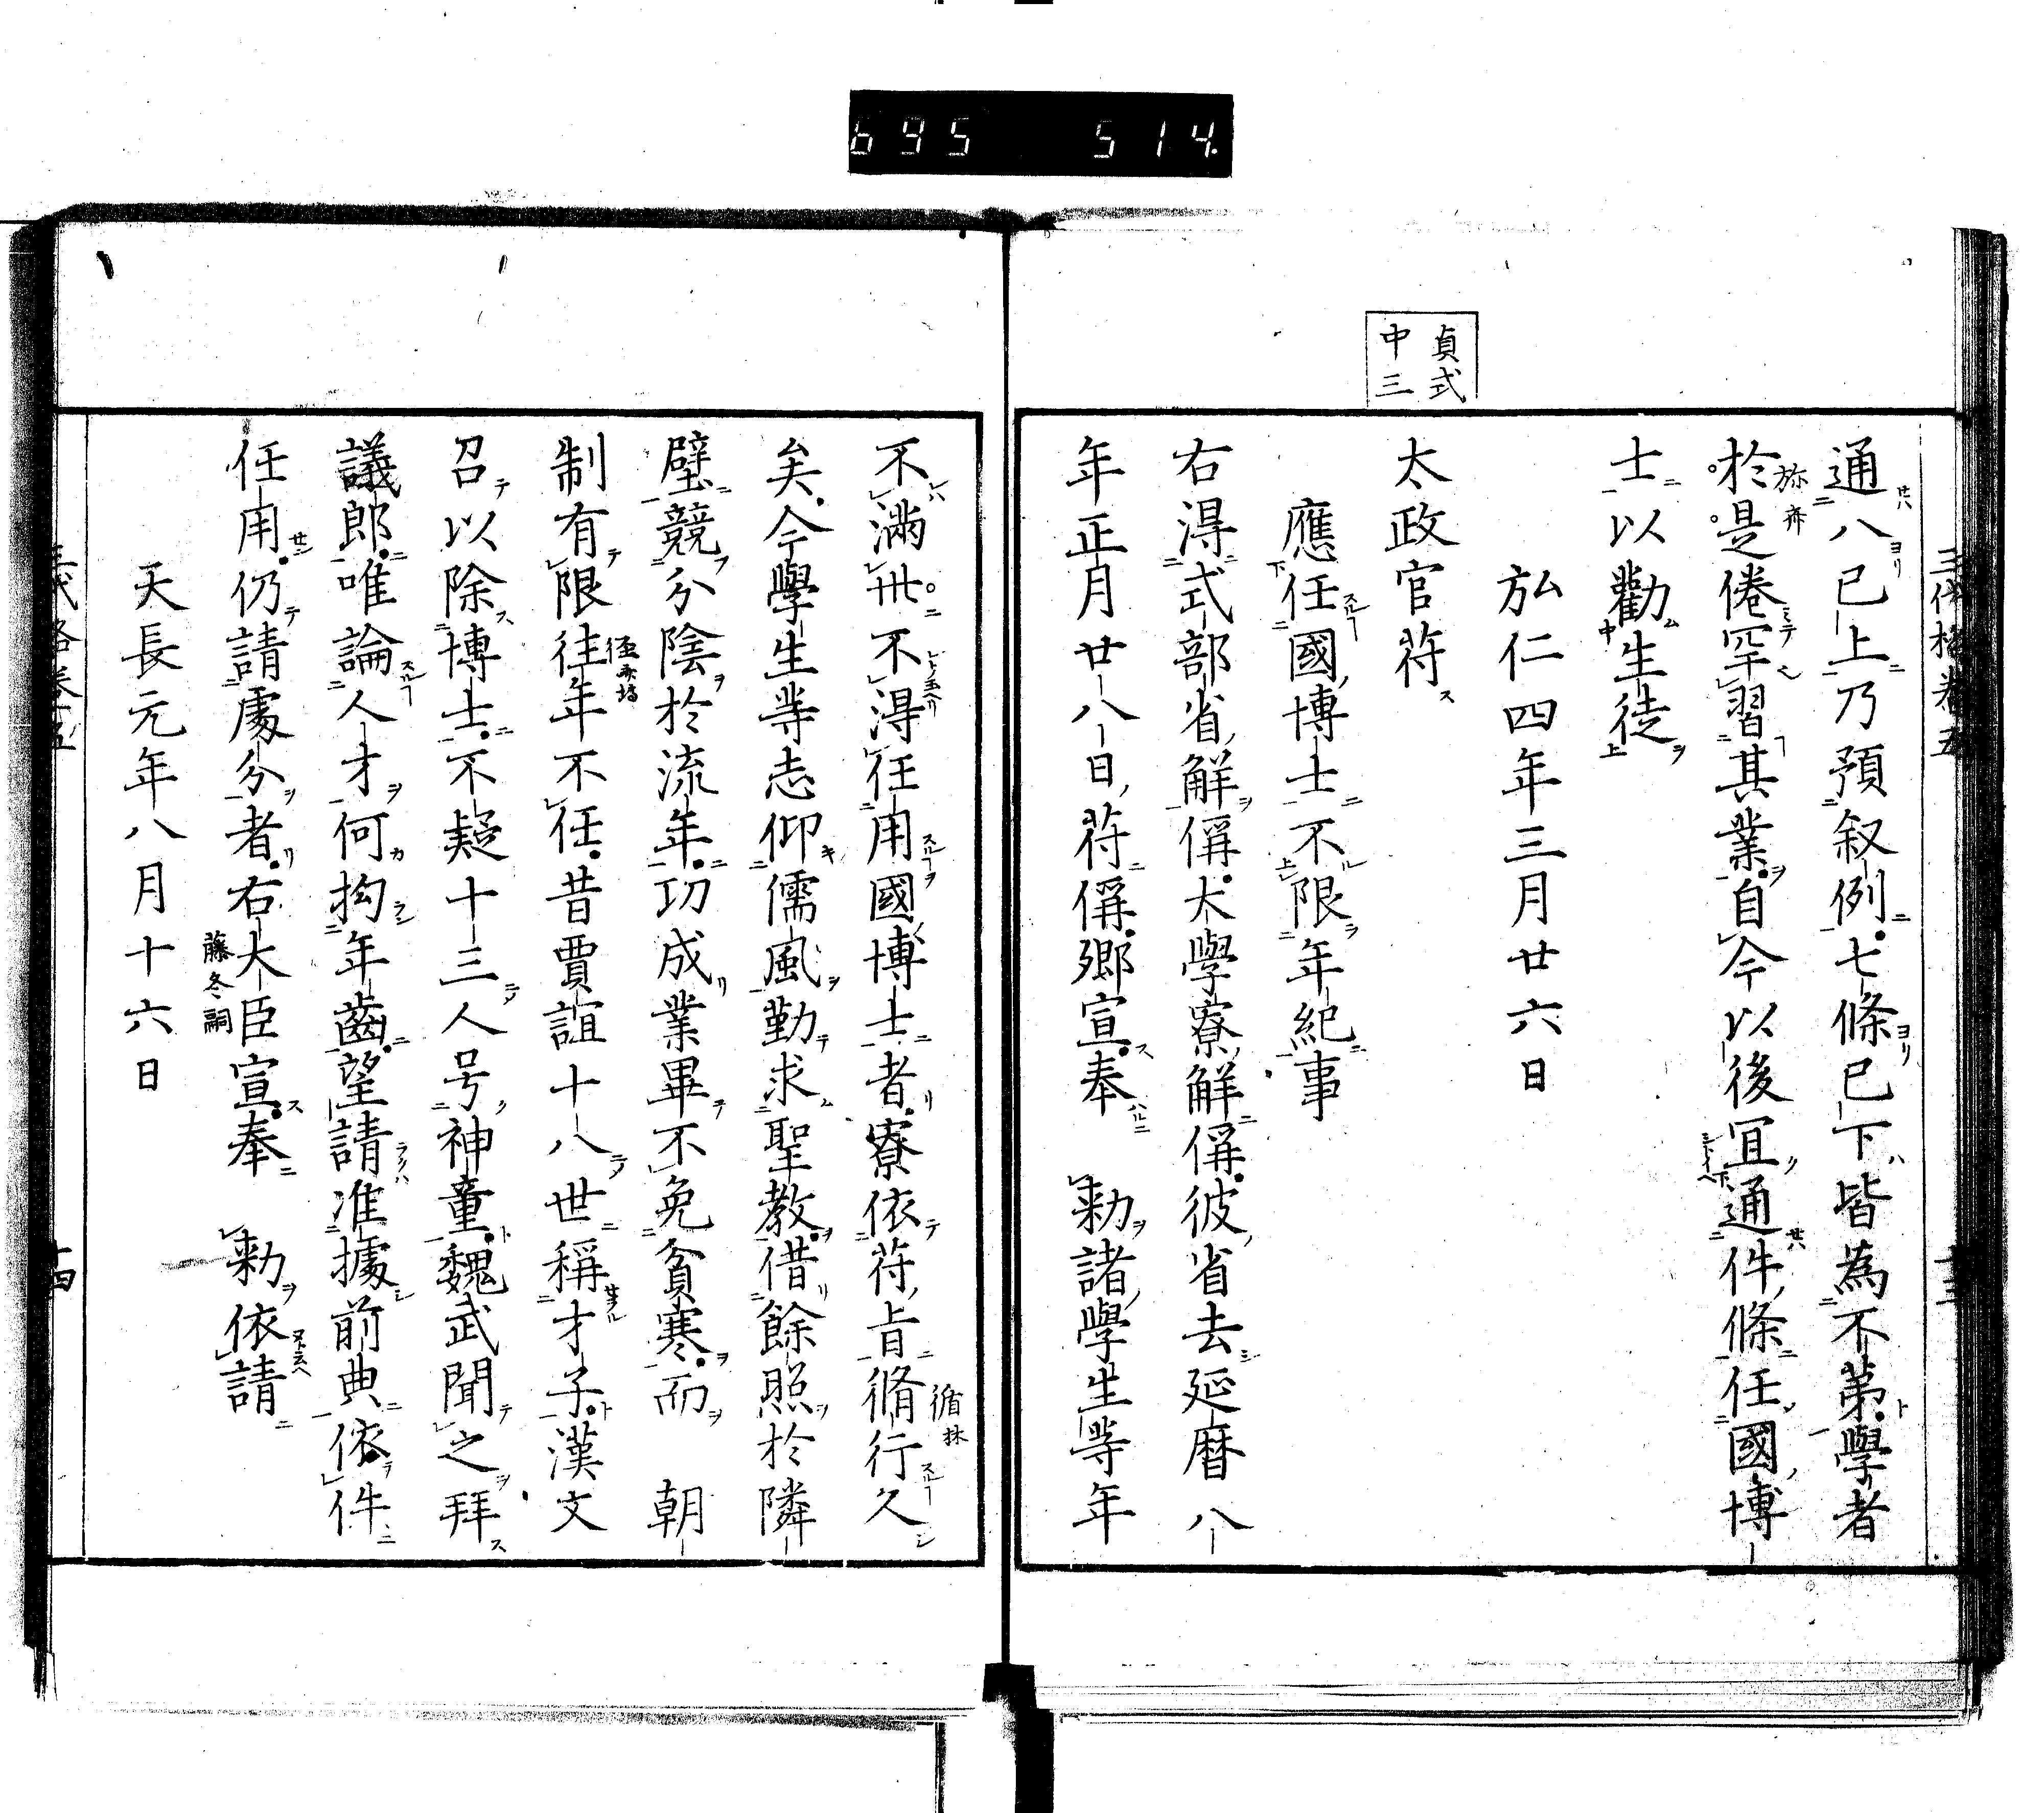 695 514
貞式
中三
三代格卷五
通八已上乃預叙例七條已下皆為不第學者
於是倦罕習其業自今以後宜通件條任國博
士以勸生徒
弘仁四年三月廿六日
太政官符
應任國博士不限年紀事
右得式部省解偁大學寮解偁彼省去延暦八
年正月廿八日符偁鄉宣奉 勅諸學生等年
不滿卅不得任用國博士者寮依符旨脩行久
矣今學生等志仰儒風勤求聖教借餘照於隣
壁競分陰於流年功成業畢不免貧寒而 朝
制有限往年不任昔賈誼十八世稱才子漢文
召以除博士不疑十三人号神童魏武聞之拜
議郎唯論人才何拘年齒望請准據前典依件
任用仍請處分者右大臣宣奉 勅依請
藤冬嗣
天長元年八月十六日